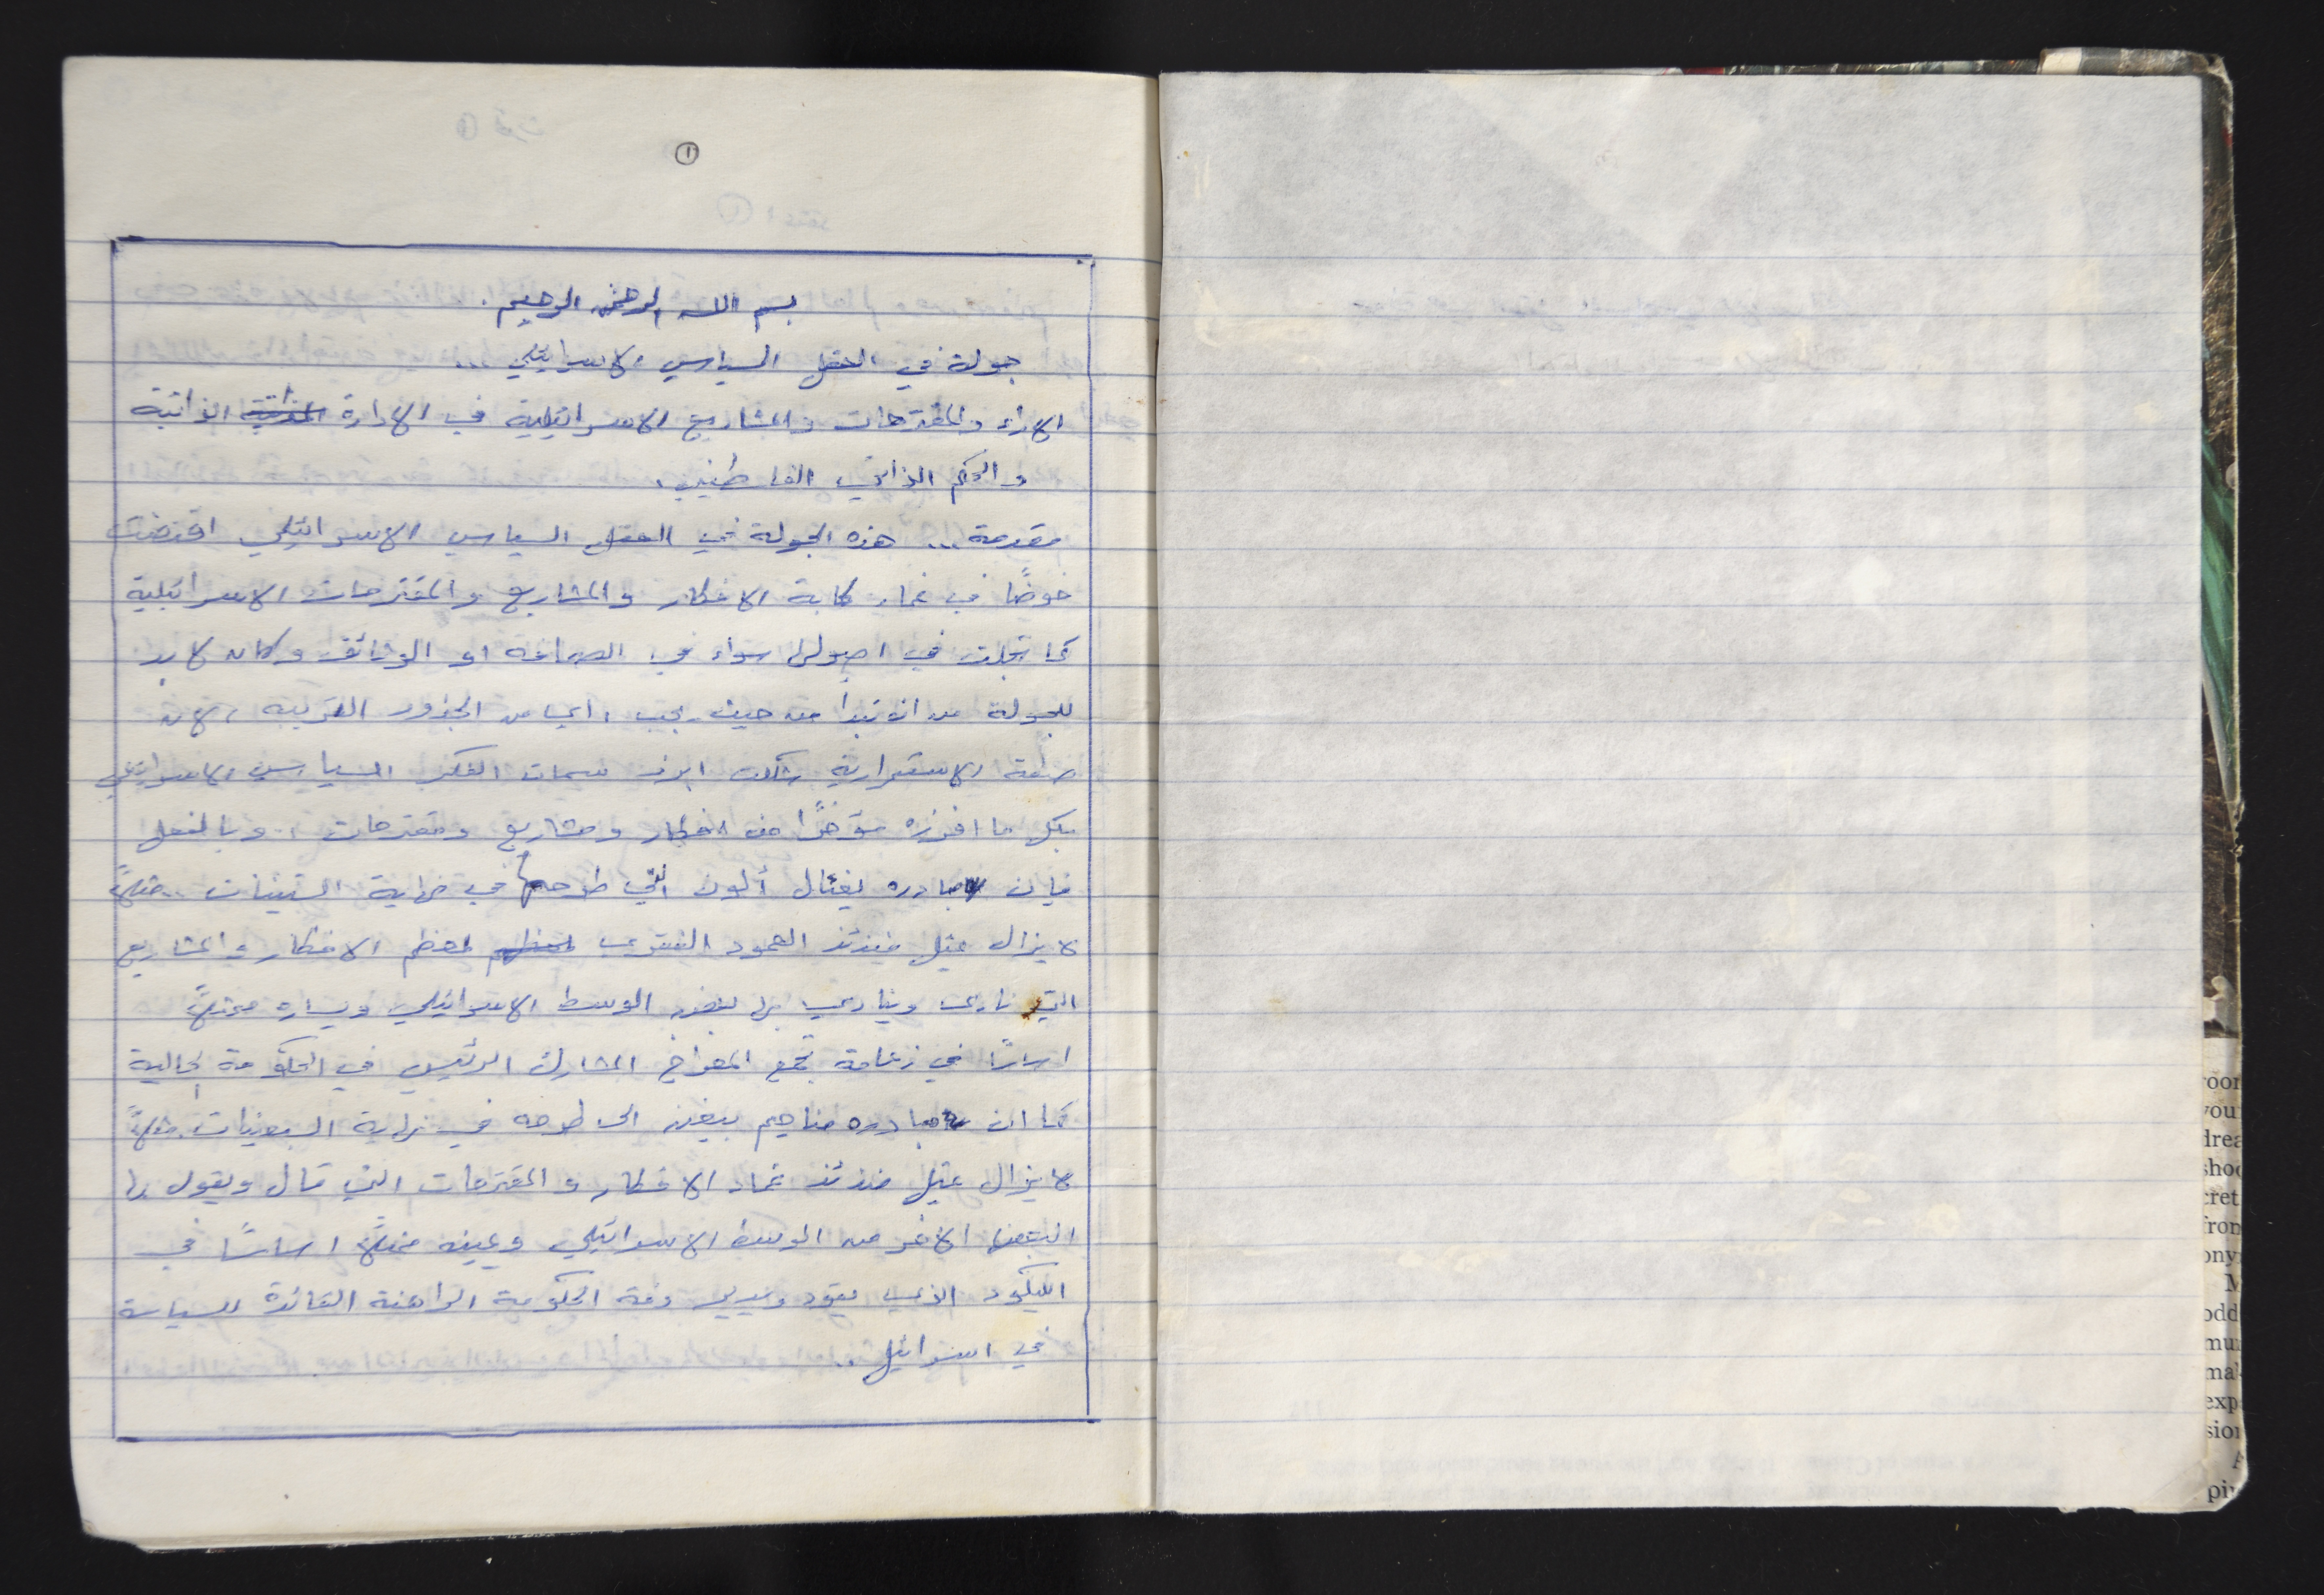 ١
بسم الله الرحمن الرحيم .
جولة في العقل السياسي الاسرائيلي ...
الاراء والمقترحات والمشاريع الاسرائيلية في الادارة الذاتية
والحكم الذاتي الفلسطيني .
مقدمة ... هذه الجولة في العقل السياسي الاسرائيلي اقتضت
خوضًا في غمار كافة الافكار والمشاريع والمقترحات الاسرائيلية
كما تجلت في اصولها سواء في الصحافة او الوثائق وكان لا بد
للجولة من ان تبدأ من حيث يجب ، اي من الجذور القريبة ، لان
صفة الاستمرارية شكلت ابرز سمات الفكر السياسي الاسرائيلي
بكل ما افرزه مؤخرًا من افكار ومشاريع ومقترحات . وبالفعل
فإن مبادره يغئال ألون التي طرحها في نهاية الستينات .. مثلاً
لا يزال يمثل منذئذ العمود الفقري لمعظم الافكار والمشاريع
التي نادى وينادي بها بعض الوسط الاسرائيلي ويساره ممثلاً
اساسًا في زعامة تجمع المعراخ المشارك الرئيس في الحكومة الحالية
كما ان مبادره مناحيم بيغن الى طرحه في نهاية السبعينات . مثلاً
لا يزال يمثل منذئذ عماد الافكار والمقترحات التي قال ويقول بها
البعض الاخر من الوسط الاسرائيلي ويمينه ممثلاً اساسًا في
الليكود الذي يقود ويدير دفة الحكومة الراهنة القائدة للسياسة
في اسرائيل ..
room
you
drea
shoo
cret
from
ony
M
odd
mu
mal
exp
sion
A
pi